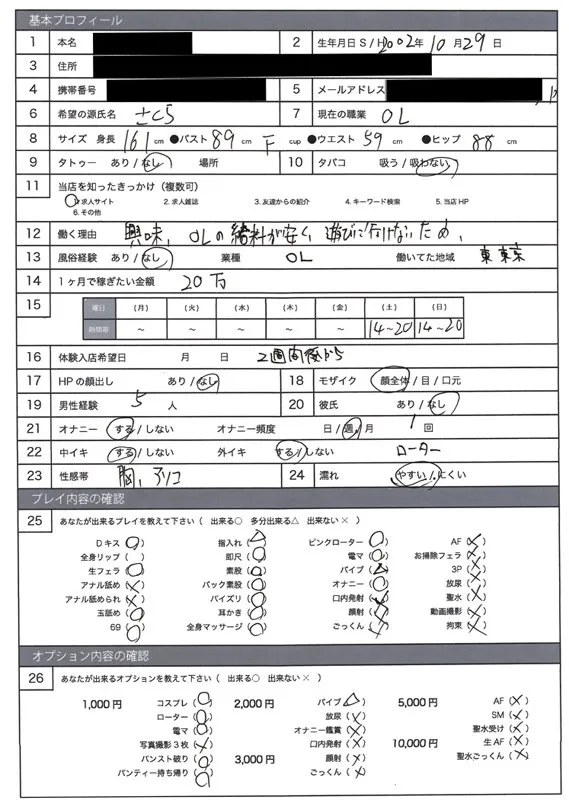 基本プロフィール
1 本名 2 生年月日 S / H 2002年 10月 29日
3 住所
4 携帯番号 5 メールアドレス
6 希望の源氏名 さくら 7 現在の職業 OL
8 サイズ 身長 161 cm ●バスト 89 cm F cup ●ウエスト 59 cm ●ヒップ 88 cm
9 タトゥー あり / なし 場所 10 タバコ 吸う / 吸わない
11 当店を知ったきっかけ（複数可）
1.求人サイト 2.求人雑誌 3.友達からの紹介 4.キーワード検索 5.当店HP
6.その他
12 働く理由 興味、OLの給料が安く、遊びに行けないため、
13 風俗経験 あり / なし 業種 OL 働いてた地域 東京
14 1ヶ月で稼ぎたい金額 20万
15 曜日 （月） （火） （水） （木） （金） （土） （日）
時間帯 〜 〜 〜 〜 〜 14〜20 14〜20
16 体験入店希望日 月 日 2週間後から
17 HPの顔出し あり / なし 18 モザイク 顔全体 / 目 / 口元
19 男性経験 5人 20 彼氏 あり / なし
21 オナニー する / しない オナニー頻度 日 / 週 / 月 1回
22 中イキ する / しない 外イキ する / しない ローター
23 性感帯 胸、クリ 24 濡れ やすい / にくい
プレイ内容の確認
25 あなたが出来るプレイを教えて下さい（ 出来る○ 多分出来る△ 出来ない× ）
Dキス（○） 指入れ（△） ピンクローター（○） AF（×）
全身リップ（ ） 即尺（○） 電マ（○） お掃除フェラ（×）
生フェラ（○） 素股（○） バイブ（△） 3P（×）
アナル舐め（×） バック素股（○） オナニー（○） 放尿（×）
アナル舐められ（×） パイズリ（○） 口内発射（×） 聖水（×）
玉舐め（○） 耳かき（○） 顔射（×） 動画撮影（×）
69（○） 全身マッサージ（○） ごっくん（×） 拘束（×）
オプション内容の確認
26 あなたが出来るオプションを教えて下さい（ 出来る○ 出来ない× ）
1,000円 コスプレ（○） 2,000円 バイブ（△） 5,000円 AF（×）
ローター（○） 放尿（×） SM（×）
電マ（○） オナニー鑑賞（×） 聖水受け（×）
写真撮影3枚（×） 口内発射（×） 10,000円 生AF（×）
パンスト破り（○） 3,000円 顔射（×） 聖水ごっくん（×）
パンティー持ち帰り（○） ごっくん（×）